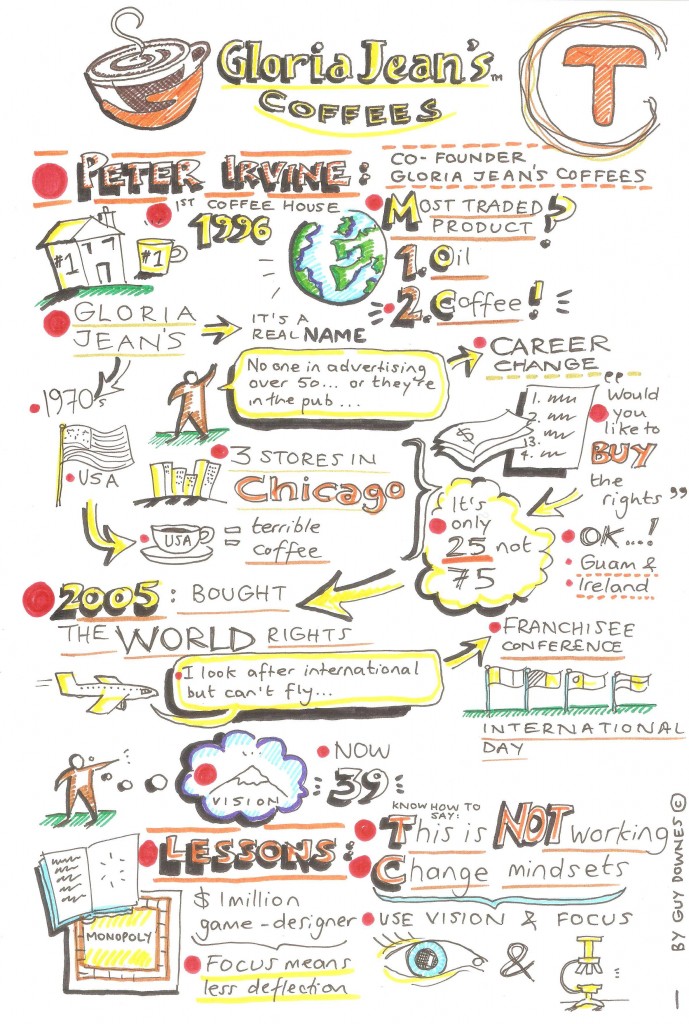 Gloria Jean's TM
COFFEES
T
PETER IRVINE:
CO-FOUNDER
GLORIA JEAN'S COFFEES
1ST COFFEE HOUSE
1996
#1
#1
MOST TRADED
PRODUCT?
1. Oil
2. Coffee!
GLORIA
JEAN'S
IT'S A
REAL NAME
No one in advertising
over 50... or they're
in the pub...
CAREER
CHANGE
1970s
USA
3 STORES IN
Chicago
USA
= terrible
coffee
$
1.
2.
13.
4.
"Would
you
like to
BUY
the
rights"
It's
only
25 not
75
OK...!
Guam &
Ireland
2005: BOUGHT
THE WORLD RIGHTS
I look after international
but can't fly...
FRANCHISEE
CONFERENCE
INTERNATIONAL
DAY
VISION
NOW
39
LESSONS:
MONOPOLY
$1million
game-designer
FOCUS means
less deflection
KNOW HOW TO
SAY:
This is NOT working
Change mindsets
USE VISION & FOCUS
&
BY GUY DOWNES ©
1